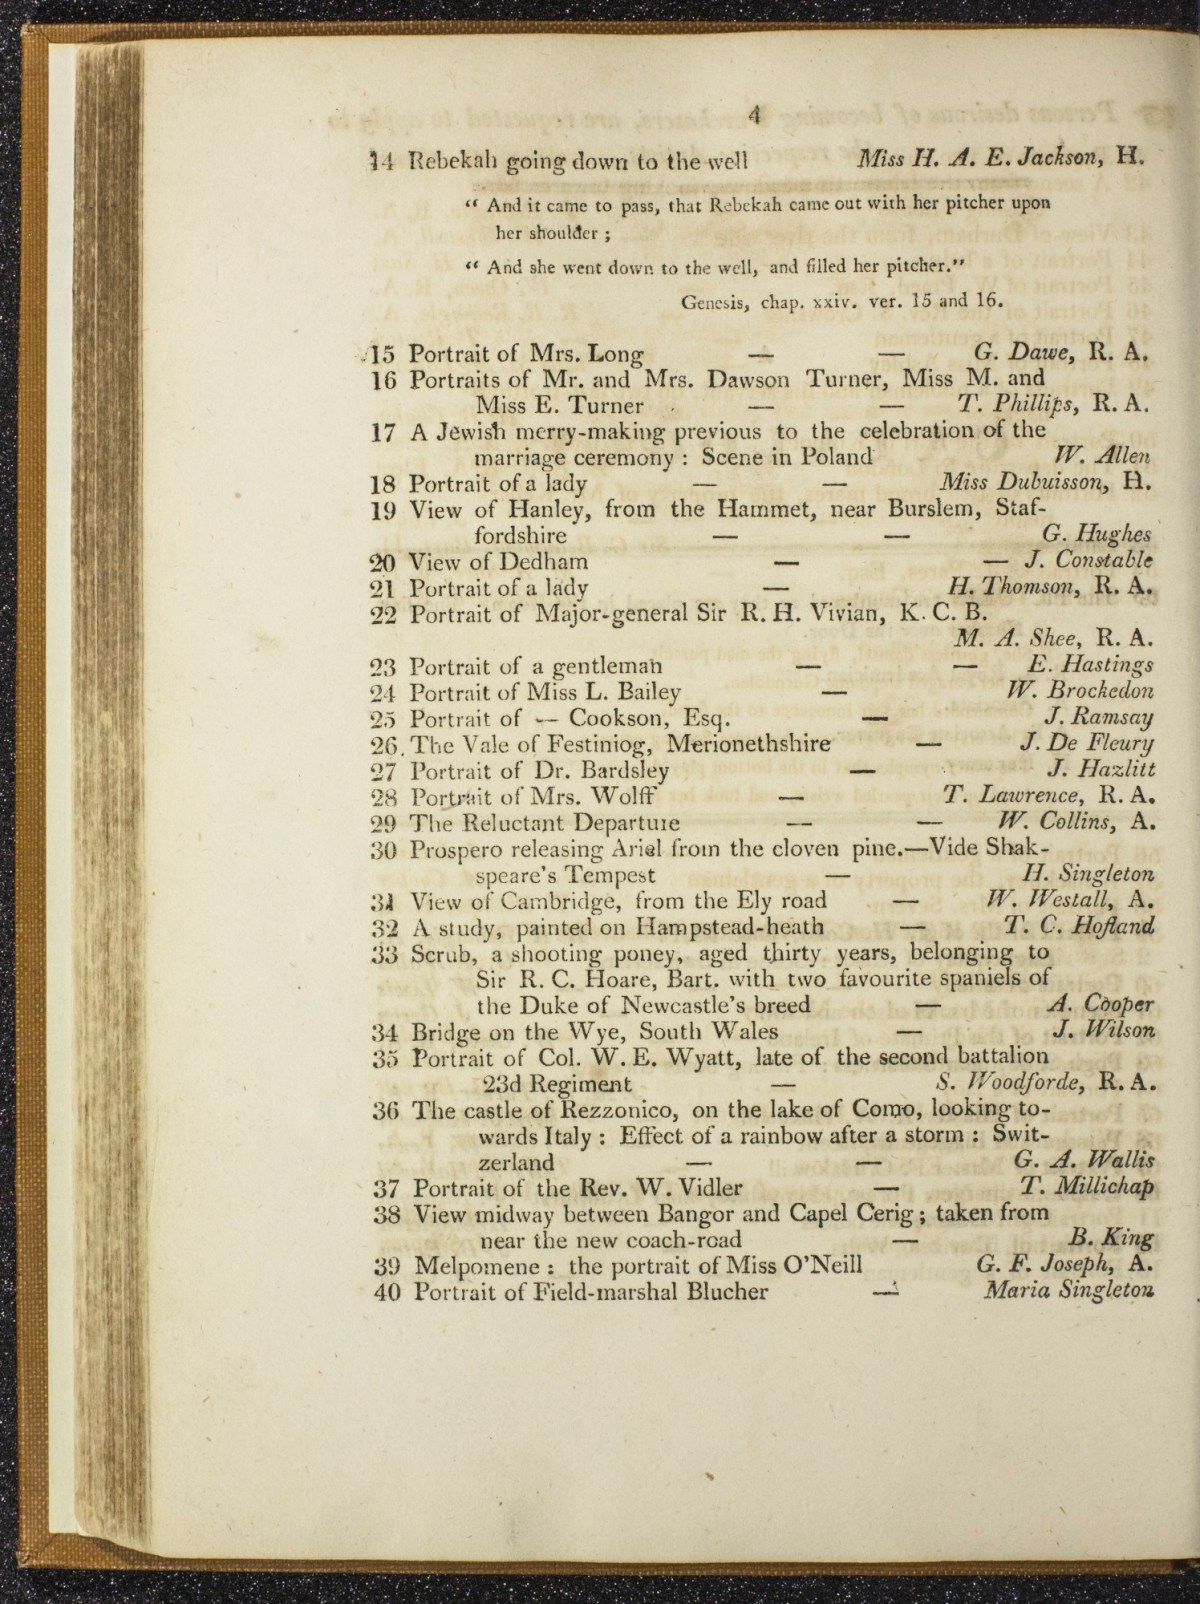 4
14 Rebekah going down to the well Miss H. A. E. Jackson, H.
“ And it came to pass, that Rebekah came out with her pitcher upon
her shoulder ;
“ And she went down to the well, and filled her pitcher.”
Genesis, chap. xxiv. ver. 15 and 16.
15 Portrait of Mrs. Long — — G. Dawe, R. A.
16 Portraits of Mr. and Mrs. Dawson Turner, Miss M. and
Miss E. Turner — — T. Phillips, R. A.
17 A Jewish merry-making previous to the celebration of the
marriage ceremony : Scene in Poland W. Allen
18 Portrait of a lady — — Miss Dubuisson, H.
19 View of Hanley, from the Hammet, near Burslem, Staf-
fordshire — — G. Hughes
20 View of Dedham — — J. Constable
21 Portrait of a lady — H. Thomson, R. A.
22 Portrait of Major-general Sir R. H. Vivian, K. C. B.
M. A. Shee, R. A.
23 Portrait of a gentleman — — E. Hastings
24 Portrait of Miss L. Bailey — W. Brockedon
25 Portrait of — Cookson, Esq. — J. Ramsay
26. The Vale of Festiniog, Merionethshire — J. De Fleury
27 Portrait of Dr. Bardsley — J. Hazlitt
28 Portrait of Mrs. Wolff — T. Lawrence, R. A.
29 The Reluctant Departure — — W. Collins, A.
30 Prospero releasing Ariel from the cloven pine.—Vide Shak-
speare's Tempest — H. Singleton
31 View of Cambridge, from the Ely road — W. Westall, A.
32 A study, painted on Hampstead-heath — T. C. Hofland
33 Scrub, a shooting poney, aged thirty years, belonging to
Sir R. C. Hoare, Bart. with two favourite spaniels of
the Duke of Newcastle's breed — A. Cooper
34 Bridge on the Wye, South Wales — J. Wilson
35 Portrait of Col. W. E. Wyatt, late of the second battalion
23d Regiment — S. Woodforde, R. A.
36 The castle of Rezzonico, on the lake of Como, looking to-
wards Italy : Effect of a rainbow after a storm : Swit-
zerland — — G. A. Wallis
37 Portrait of the Rev. W. Vidler — T. Millichap
38 View midway between Bangor and Capel Cerig ; taken from
near the new coach-road — B. King
39 Melpomene : the portrait of Miss O'Neill G. F. Joseph, A.
40 Portrait of Field-marshal Blucher — Maria Singleton